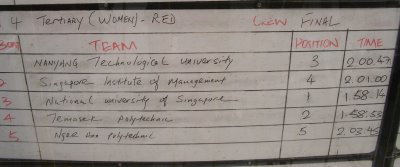 4 TERTIARY (WOMEN) - RED CREW FINAL
TEAM POSITION TIME
NANYANG Technological UNIVERSITY 3 2.00.47
2 Singapore Institute of Management 4 2.01.00
3 National university of Singapore 1 1.58.14
4 Temasek Polytechnic 2 1.58.53
5 Ngee Ann Polytechnic 5 2.03.45